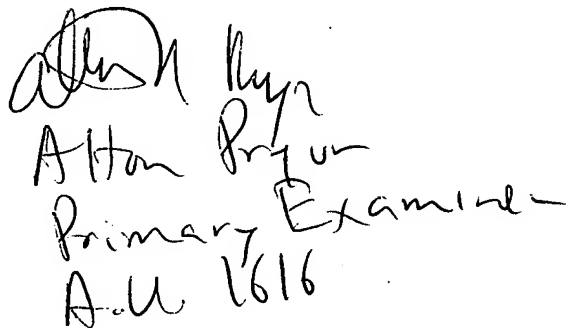 Alton Pryor
Primary Examiner
A.U. 1616